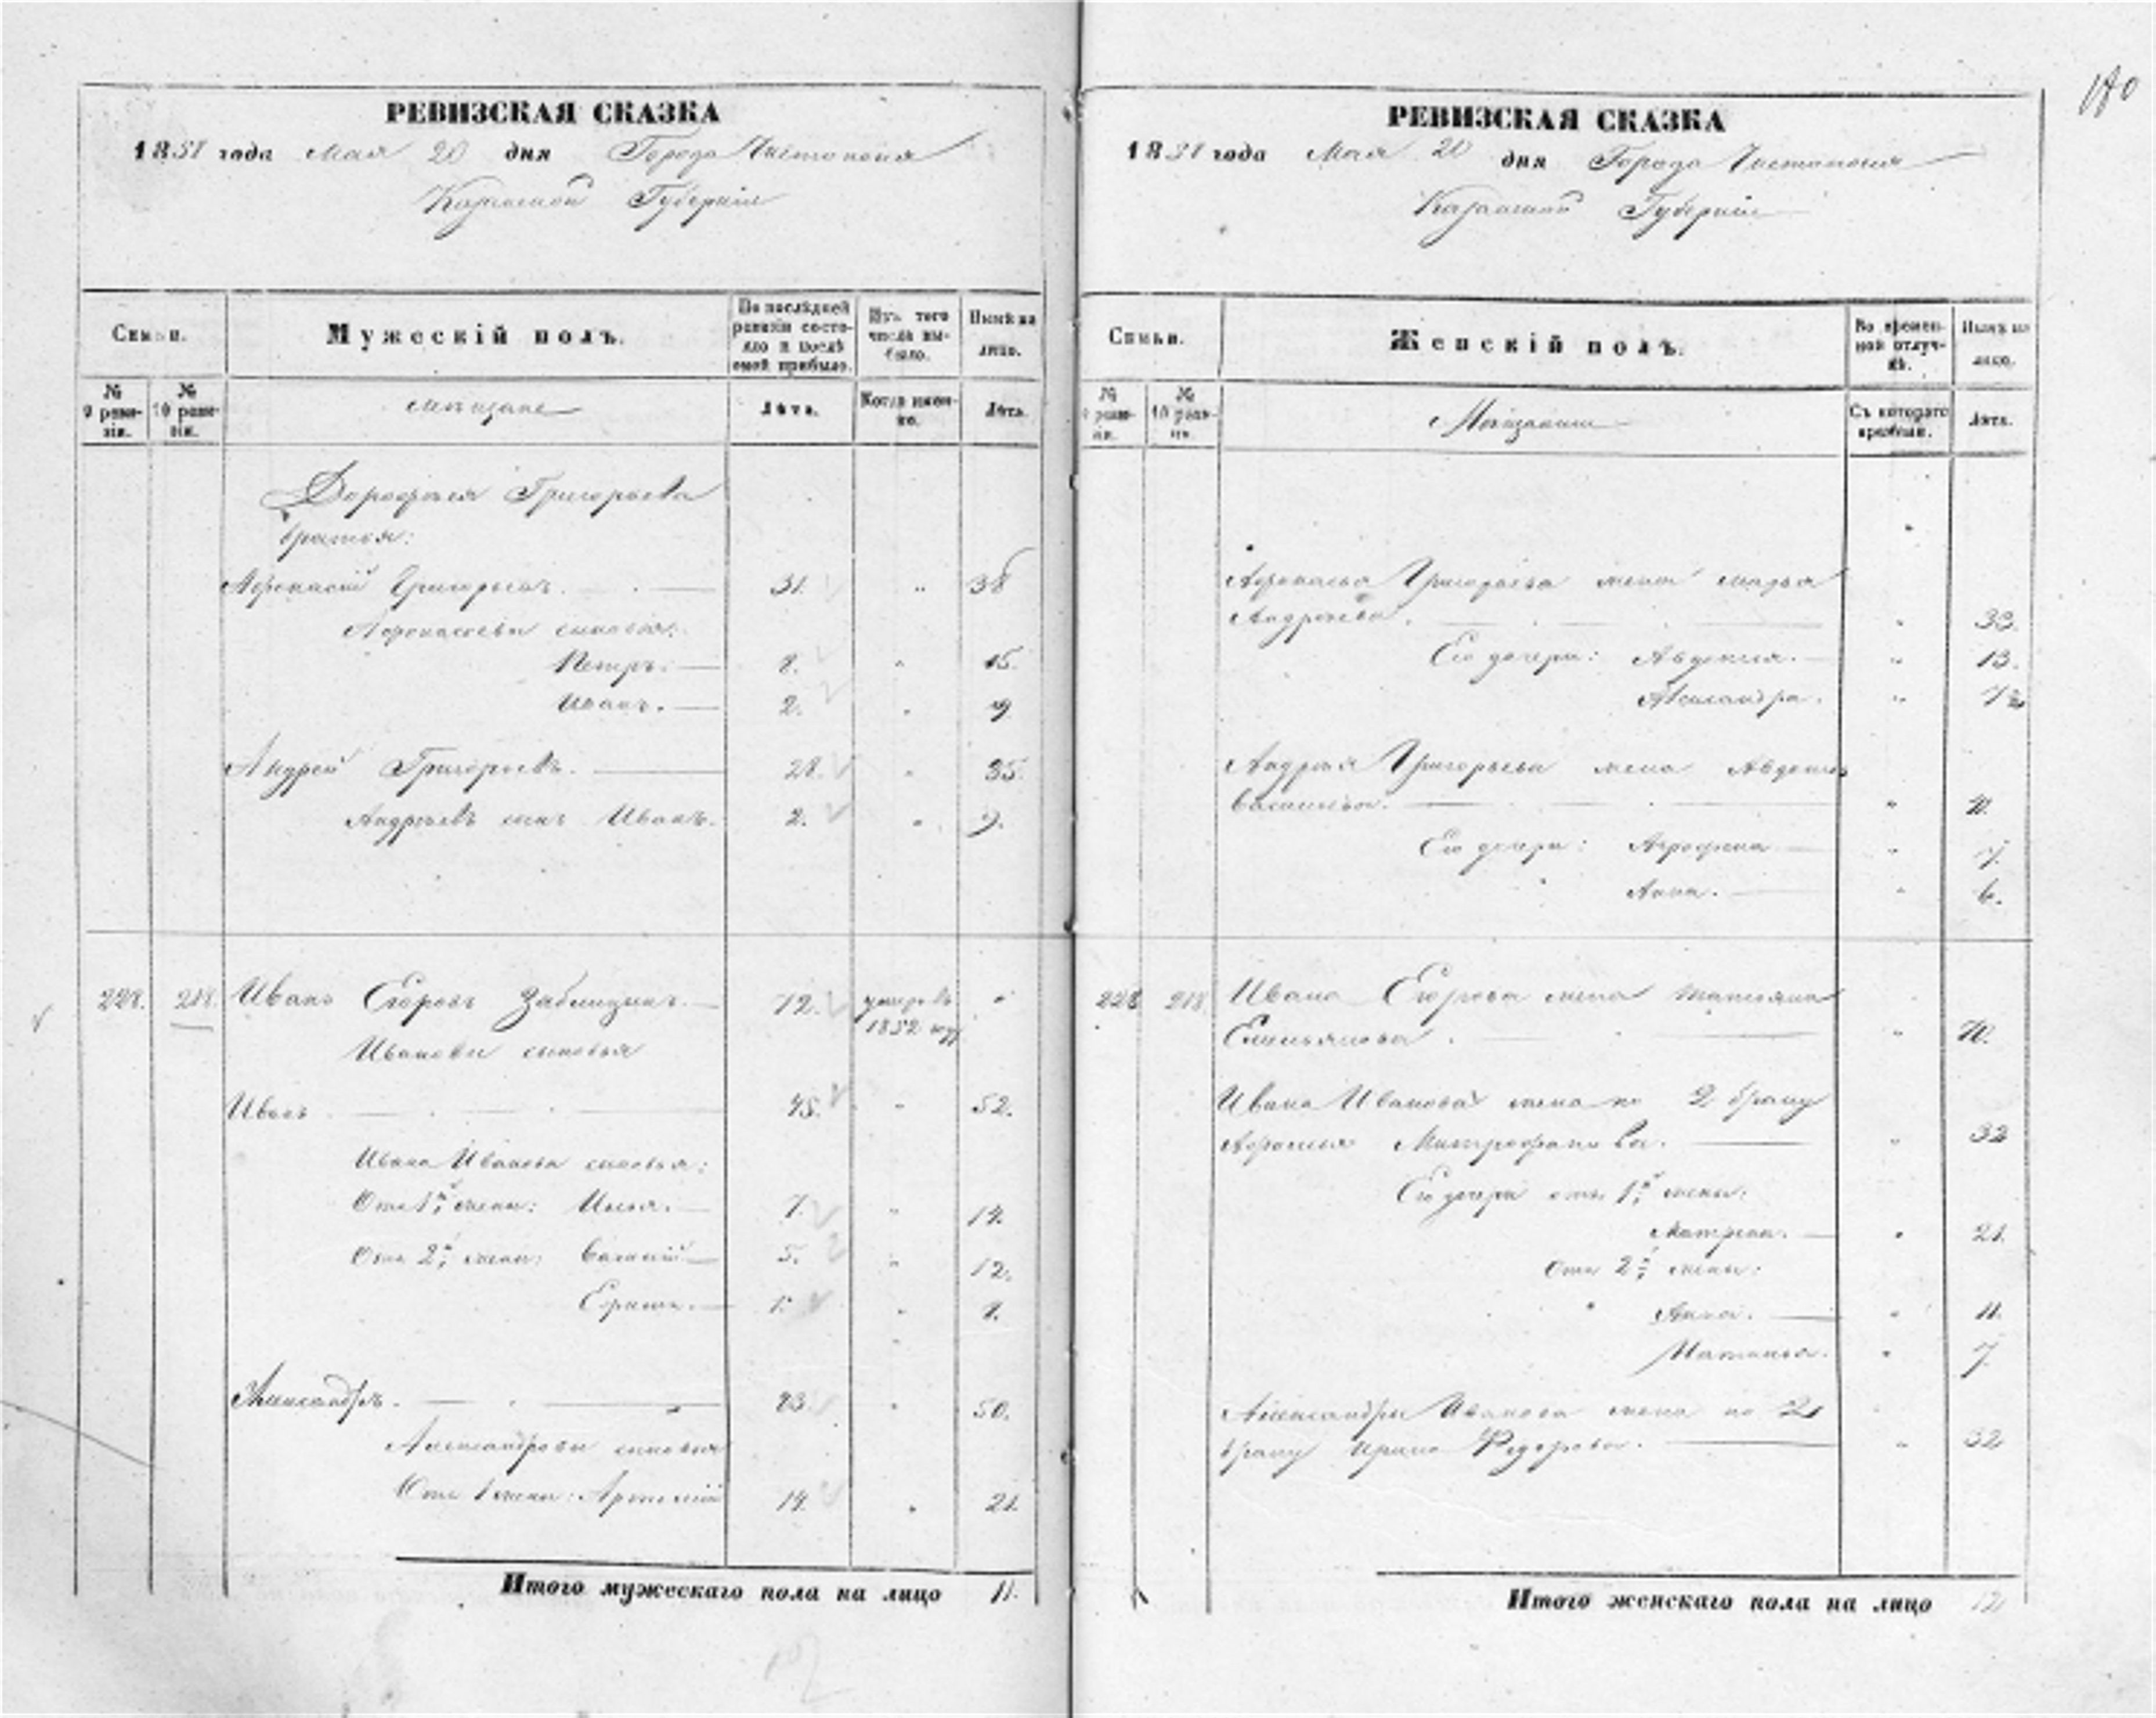 180
РЕВИЗСКАЯ СКАЗКА
1858 года Мая 20 дня Города Чистополя
Казанской Губернiи
Семьи.
Мужескiй полъ.
По послѣдней ревизiи состояло и послѣ оной прибыло.
Изъ того числа выбыло.
Нынѣ на лицо.
№ 9 ревизiи.
№ 10 ревизiи.
Мѣщане
Лѣта.
Когда именно.
Лѣта.
Дорофея Григорьева
братья:
Афонасiй Григорьевъ. 31. " 38
Афонасьевы сыновья:
Петръ. 8. " 15.
Иванъ. 2. " 9
Андрей Григорьевъ. 28. " 35.
Андреевъ сынъ Иванъ. 2. " 9.
228. 218. Иванъ Егоровъ 72. умеръ въ 1852 году "
Ивановы сыновья
Иванъ 45. " 52.
Ивана Иванова сыновья:
Отъ 1й жены: Илья. 7. " 14.
Отъ 2й жены: Василiй 5. " 12.
1. " 8.
Александръ. 43. " 50.
Александровы сыновья
Отъ 1 жены: Артемiй 14. " 21.
Итого мужескаго пола на лицо 11.
РЕВИЗСКАЯ СКАЗКА
1858 года Мая 20 дня Города Чистополя
Казанской Губернiи
Семьи.
Женскiй полъ.
Во временной отлучкѣ.
Нынѣ на лицо.
№ 9 ревизiи.
№ 10 ревизiи.
Мѣщанки
Съ котораго времени.
Лѣта.
Афонасья Григорьева жена Марья
Андреева. " 33.
Его дочери: Авдотья. " 13.
Александра. "
Андрея Григорьева жена Авдотья
Васильева. "
Его дочери: Агрофина " 7.
Анна. " 6.
228 218 Ивана Егорова жена Татьяна
Емельянова. " 70.
Ивана Иванова жена по 2 браку
Афросинья Митрофанова. " 32
Его дочери отъ 1й жены:
Матрена. " 21.
Отъ 2й жены:
Анна. " 11.
Наталья. " 7.
Александры Иванова жена по 2
браку Ирина Федорова. " 32
Итого женскаго пола на лицо 12